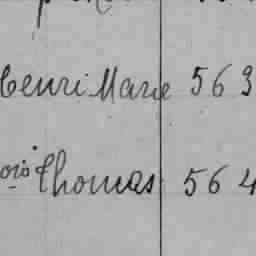 Henri Marie 563
ois Thomas 564